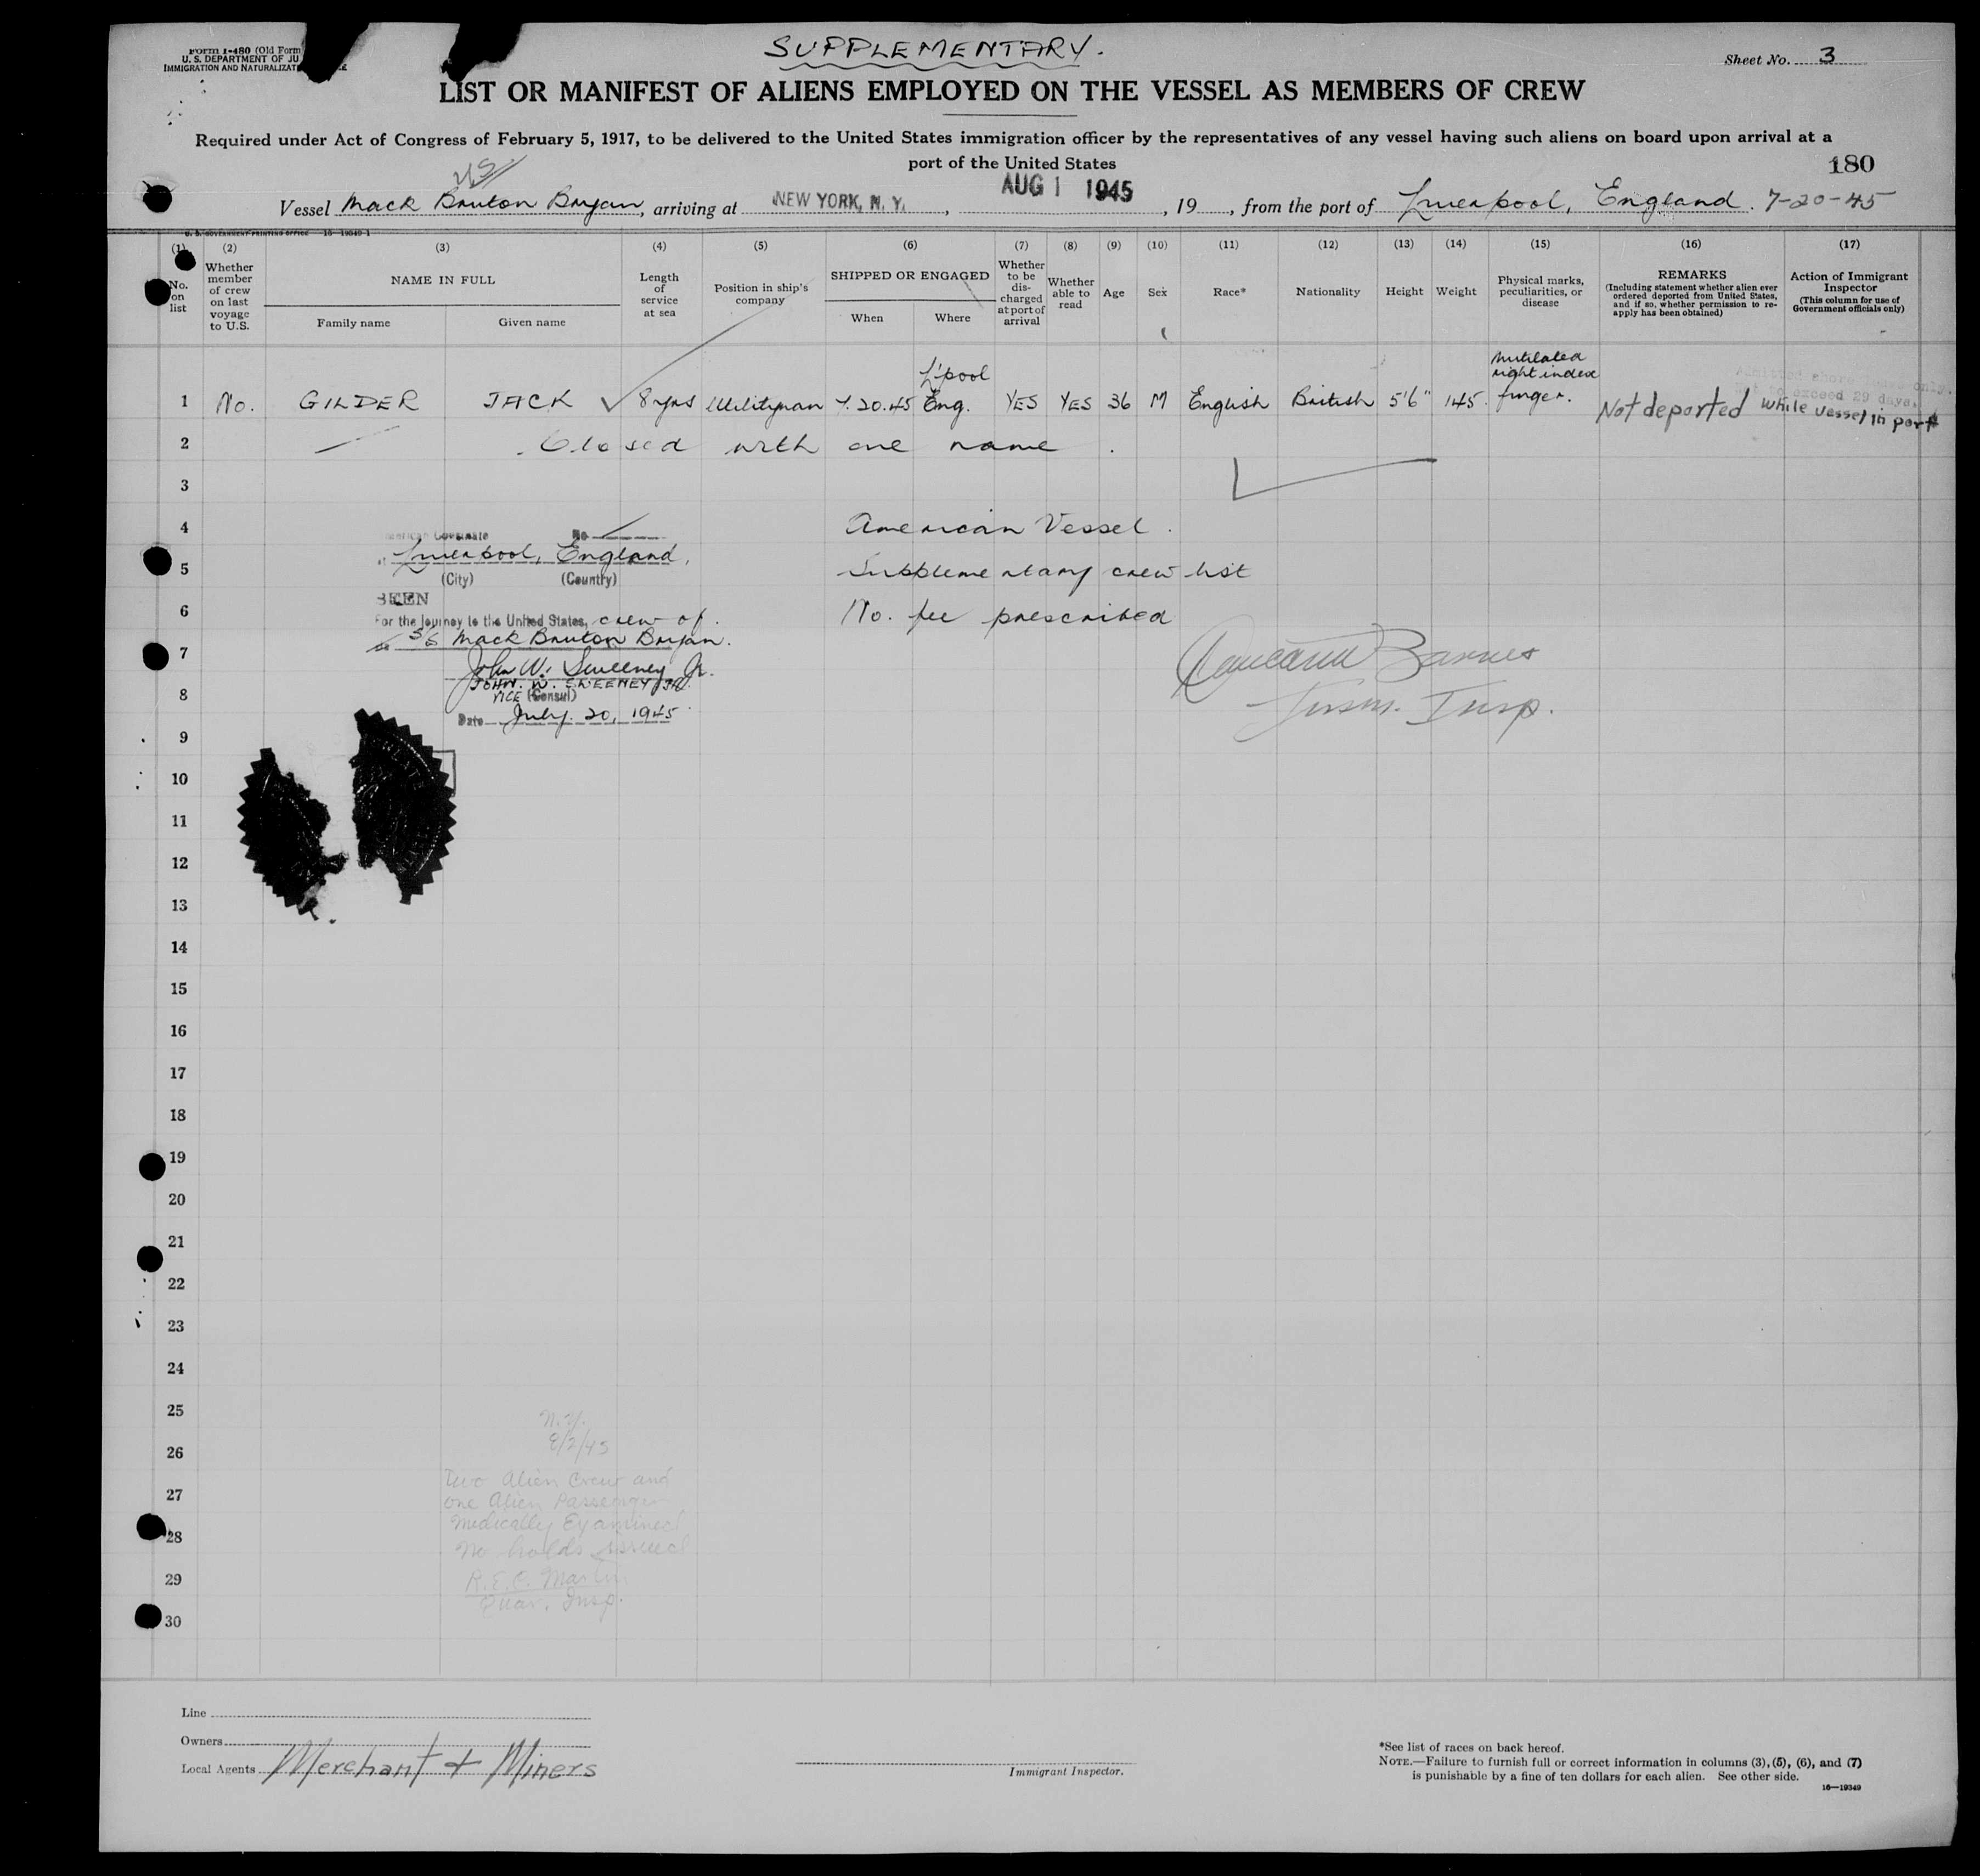 SUPPLEMENTARY.
Form I-480 (Old Form
U. S. DEPARTMENT OF JU
IMMIGRATION AND NATURALIZAT
Sheet No. 3
LIST OR MANIFEST OF ALIENS EMPLOYED ON THE VESSEL AS MEMBERS OF CREW
Required under Act of Congress of February 5, 1917, to be delivered to the United States immigration officer by the representatives of any vessel having such aliens on board upon arrival at a
port of the United States
180
Vessel Mack Bruton Bryan, arriving at NEW YORK, N. Y., AUG 1 1945, 19, from the port of Liverpool, England. 7-20-45
U. S. GOVERNMENT PRINTING OFFICE 16-19349-1
(1) (2) (3) (4) (5) (6) (7) (8) (9) (10) (11) (12) (13) (14) (15) (16) (17)
No. on list
Whether member of crew on last voyage to U.S.
NAME IN FULL
Family name
Given name
Length of service at sea
Position in ship's company
SHIPPED OR ENGAGED
When
Where
Whether to be discharged at port of arrival
Whether able to read
Age
Sex
Race*
Nationality
Height
Weight
Physical marks, peculiarities, or disease
REMARKS
(Including statement whether alien ever ordered deported from United States, and if so, whether permission to re-apply has been obtained)
Action of Immigrant Inspector
(This column for use of Government officials only)
1 No. GILDER JACK 8 yrs Utilityman 7.20.45 L'pool Eng. YES YES 36 M English British 5'6" 145. Mutilated right index finger. Not deported while vessel in port
exceed 29 days,
2 Closed with one name.
3
4 American Vessel.
American Consulate No
5 Supplementary crew list
at Liverpool, England,
(City) (Country)
SEEN
6 No. fee prescribed
For the journey to the United States, crew of.
S/S Mack Bruton Bryan.
7
John W. Sweeney Jr.
JOHN. W. SWEENEY JR.
8
VICE (Consul)
Date July. 20, 1945
Barnes
Imm. Insp.
9
10
11
12
13
14
15
16
17
18
19
20
21
22
23
24
25
N.Y.
26
8/2/45
Two Alien Crew and
27
one Alien Passenger
Medically Examined
28
No holds issued
29
R.E.C. Martin
Quar. Insp.
30
Line
Owners
Local Agents Merchant & Miners
Immigrant Inspector.
*See list of races on back hereof.
NOTE.—Failure to furnish full or correct information in columns (3), (5), (6), and (7)
is punishable by a fine of ten dollars for each alien. See other side.
16—19349